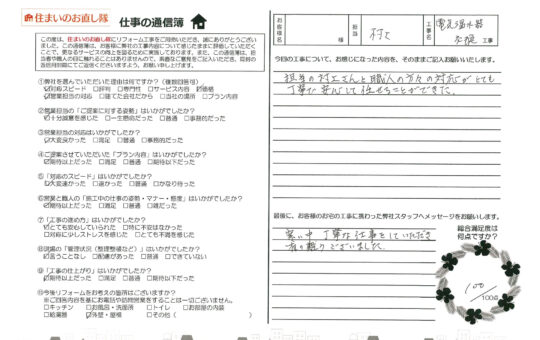 住まいのお直し隊 仕事の通信簿
この度は、住まいのお直し隊にリフォーム工事をご用命いただき、誠にありがとうございました。
①弊社を選んでいただいた理由は何ですか？（複数回答可）
☑対応スピード □評判 □専門性 □サービス内容 ☑価格
☑営業担当の対応 □建てた会社だから □当社の場所 □プラン内容
②営業担当の「ご提案に対する姿勢」はいかがでしたか？
☑十分誠意を感じた □一生懸命だった □普通 □事務的だった
③営業担当の対応はいかがでしたか？
☑大変良かった □満足 □普通 □事務的だった
④ご提案させていただいた「プラン内容」はいかがでしたか？
☑期待以上だった □満足 □普通 □期待以下だった
⑤「対応のスピード」はいかがでしたか？
☑大変速かった □速かった □普通 □かなり待った
⑥営業と職人の「施工中の仕事の姿勢・マナー・態度」はいかがでしたか？
☑期待以上だった □満足 □普通 □期待以下だった
⑦「工事の進め方」はいかがでしたか？
☑とても安心していられた □特に不安はなかった
□対応に少しストレスを感じた □とても不満を感じた
⑧現場の「管理状況（整理整頓など）」はいかがでしたか？
☑言うことなし □配慮があった □普通 □できていない
⑨「工事の仕上がり」はいかがでしたか？
☑期待以上だった □満足 □普通 □期待以下だった
⑩今後リフォームをお考えの箇所はございますか？
※ご回答内容を基にお電話や訪問営業をすることは一切ございません。
□キッチン □お風呂・洗面所 □トイレ □お部屋の内装
□給湯器 ☑外壁・屋根 □その他（ ）
お客様名 様 担当 村工 工事名 電気温水器 工事
今回の工事について、お感じになった内容を、そのままご記入お願いいたします。
担当の村工さんと職人の方々の対応がとても
丁寧で安心して任せることができた。
最後に、お客様のお宅の工事に携わった弊社スタッフへメッセージをお願いします。
寒い中 丁寧な仕事をしていただき
有り難うございました。
総合満足度は
何点ですか？
100
/100点